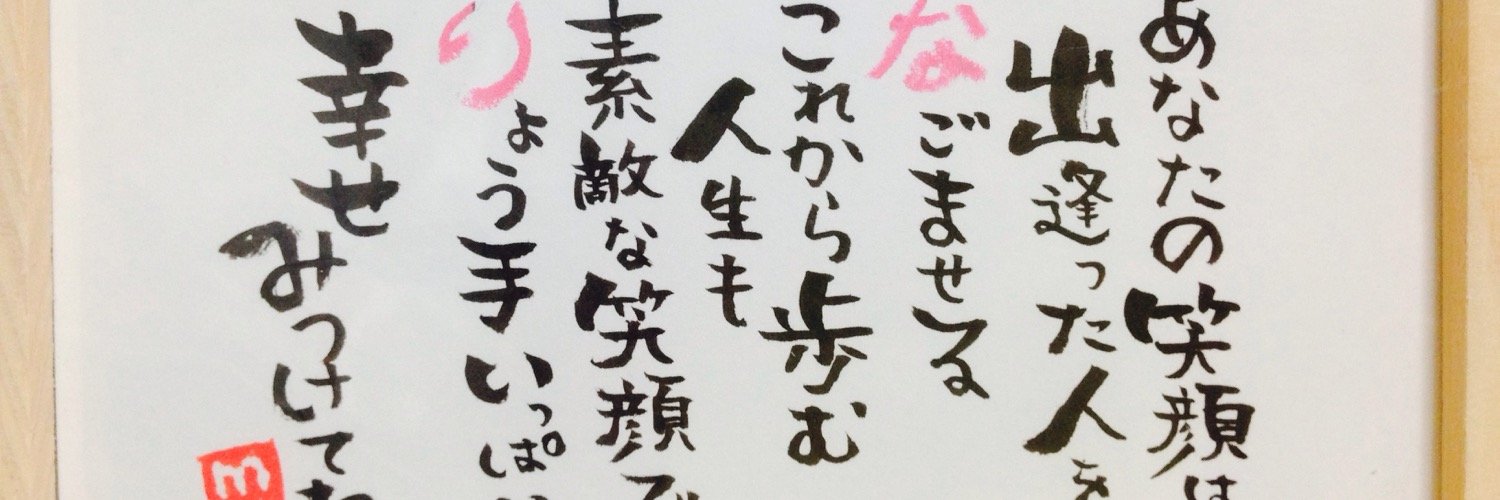 あなたの笑顔は
出逢った人を
なごませる
これから歩む
人生も
素敵な笑顔で
りょう手いっぱい
幸せみつけてね
m